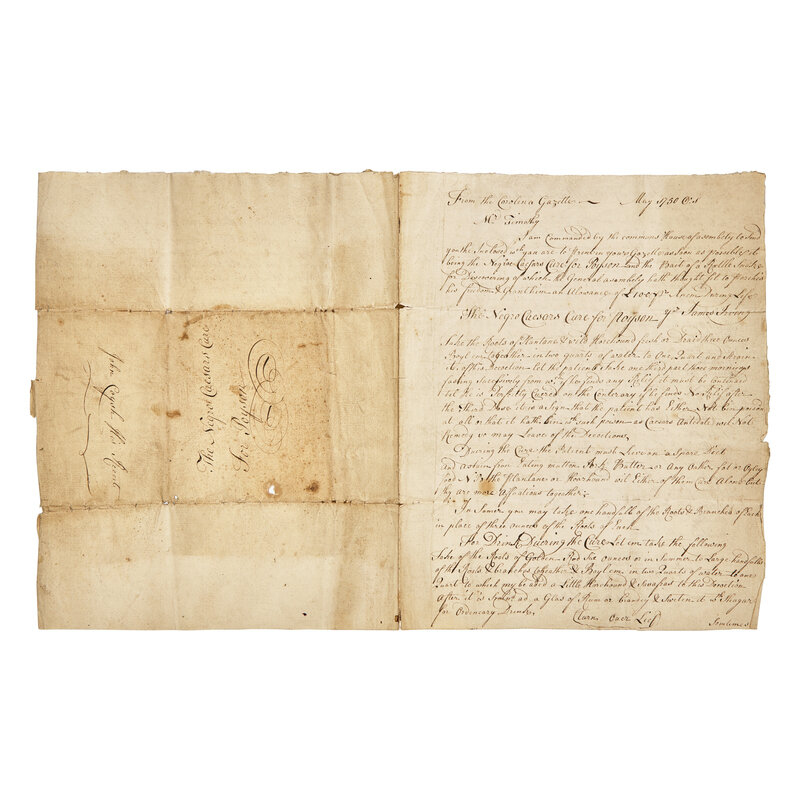 The Negro Caesars Cure
For Poyson
From the Carolina Gazette May 1750
Mr Timothy
I am Commanded by the commons House of assembely to send
you the Inclosed wch you are to Print in your Gazette as soon as possible it
being the Negroe Caesars Cure for Poyson and the Bait of a Rattle Snake
for Discovering of which the General assembely hath thought fit to Purchas
his freedom & Grant him an Alowance of £100 pr Anem During Life
The Negro Caesars Cure for Poyson yr James Irving
Take the Roots of Plantane & wild Horehound fresh or Dryed three Ounces
Boyl em togeather in two quarts of water to One Quart and Strain
it of this Decoction Let the patient take one third part three mornings
fasting sucsesively from wch if he finds any Relief it must be continued
till he is Perfectly Cuered on the Conterary if he finds No Relief after
the third Dose it is a sign that the patient has Either Not ben poisond
at all or that it hath bin wth such poyson as Caesars Antidote will Not
Remedy so may Leave of the Decoction
Duering the Cure the Patient must Live on a Spare Diet
and abstain from Eating mutton Pork Butter or Any Other fat or Oyley
food NB the Plantane or Hoarhound wil Either of them Cure Alone but
thy are more Efficatious together
In Sumer you may take one handfull of the Roots & Branches of Each
in place of three ounces of the Roots of Each
For Drink Duering the Cure Let em take the following
Take of the Roots of Golden Rod Six Ounces or in Summer to Large handfulls
of the Roots & branches togeather & Boyl em in two Quarts of water to one
Quart to which my be aded a Little Horhound & Sasafras to this Decoction
After it is Strand ad a Glas of Rum or brandy & Sweten it wth Shugar
for Ordeneary Drink
Turn Over Leef
Somtimes